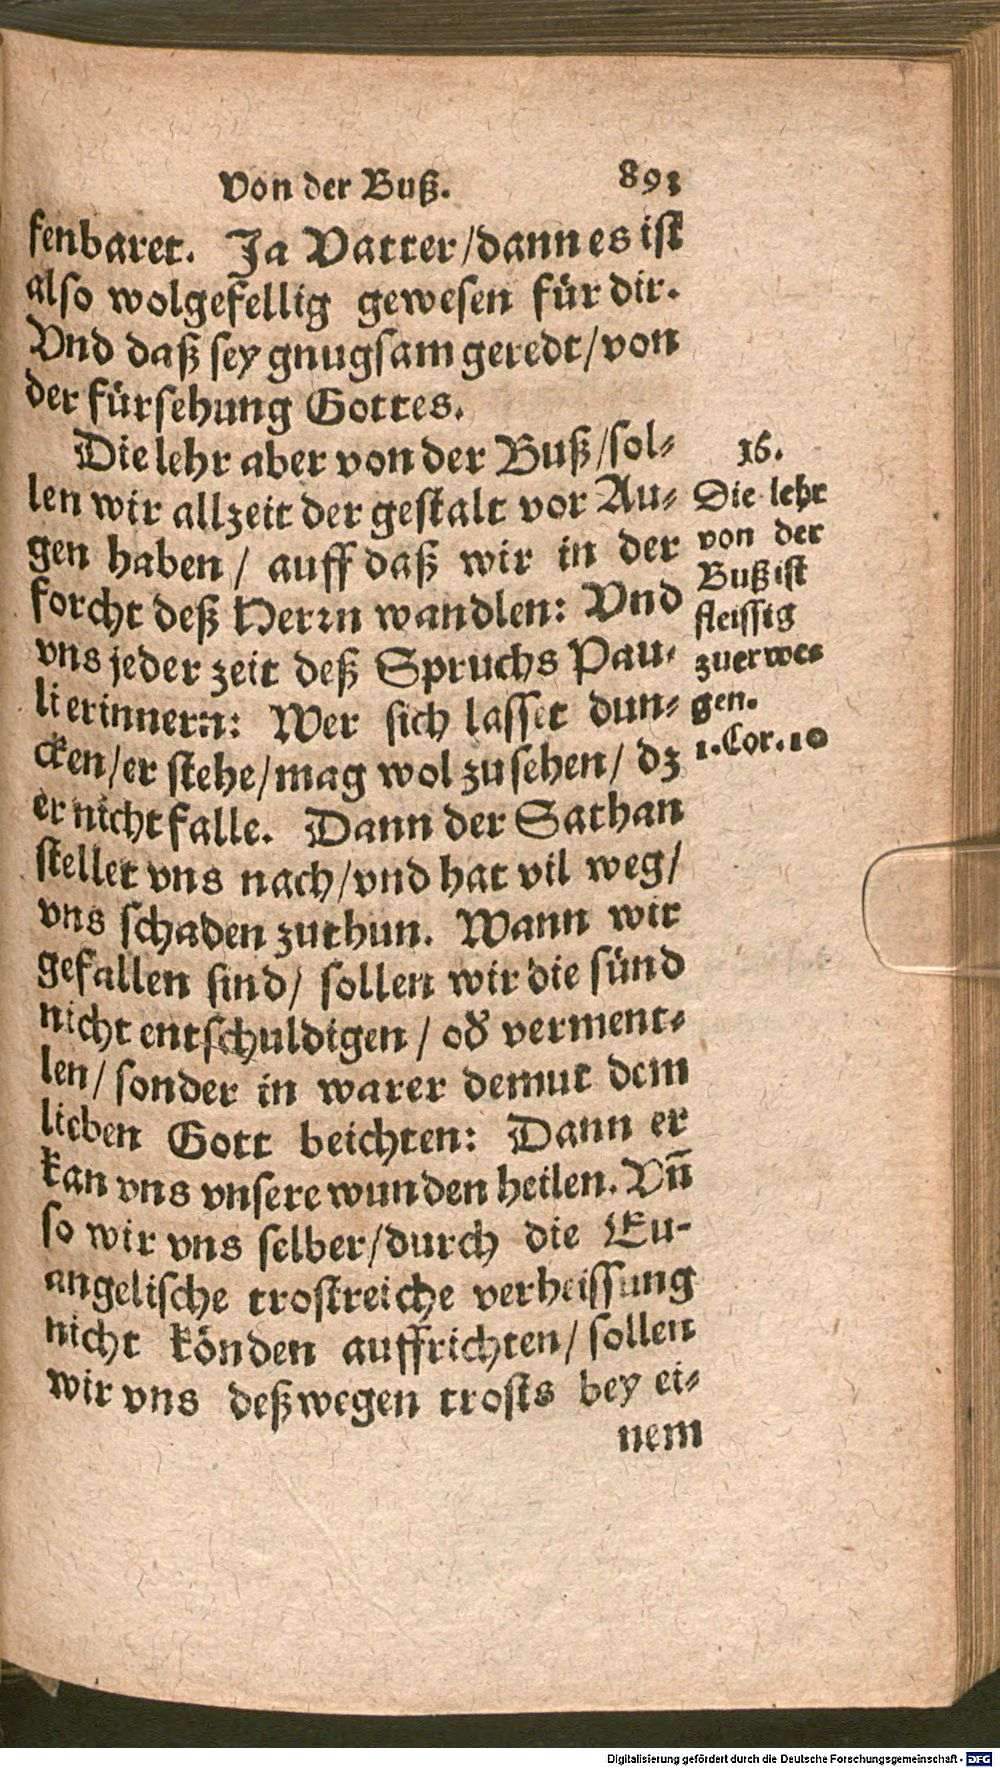 Von der Buß. 893
fenbaret. Ja Vatter/dann es ist
also wolgefellig gewesen für dir.
Vnd daß sey gnugsam geredt/von
der fürsehung Gottes.
Die lehr aber von der Buß/sol-
len wir allzeit der gestalt vor Au-
gen haben/ auff daß wir in der
forcht deß Herrn wandlen: Vnd
vns jeder zeit deß Spruchs Pau-
li erinnern: Wer sich lasset dun-
cken/er stehe/mag wol zusehen/ dz
er nicht falle. Dann der Sathan
stellet vns nach/vnd hat vil weg/
vns schaden zuthun. Wann wir
gefallen sind/ sollen wir die sünd
nicht entschuldigen/ oď verment-
len/ sonder in warer demut dem
lieben Gott beichten: Dann er
kan vns vnsere wunden heilen. Vñ
so wir vns selber/durch die Eu-
angelische trostreiche verheissung
nicht könden auffrichten/ sollen
wir vns deßwegen trosts bey ei-
nem
16.
Die lehr
von der
Buß ist
fleissig
zuerwe-
gen.
1.Cor.10
Digitalisierung gefördert durch die Deutsche Forschungsgemeinschaft - DFG